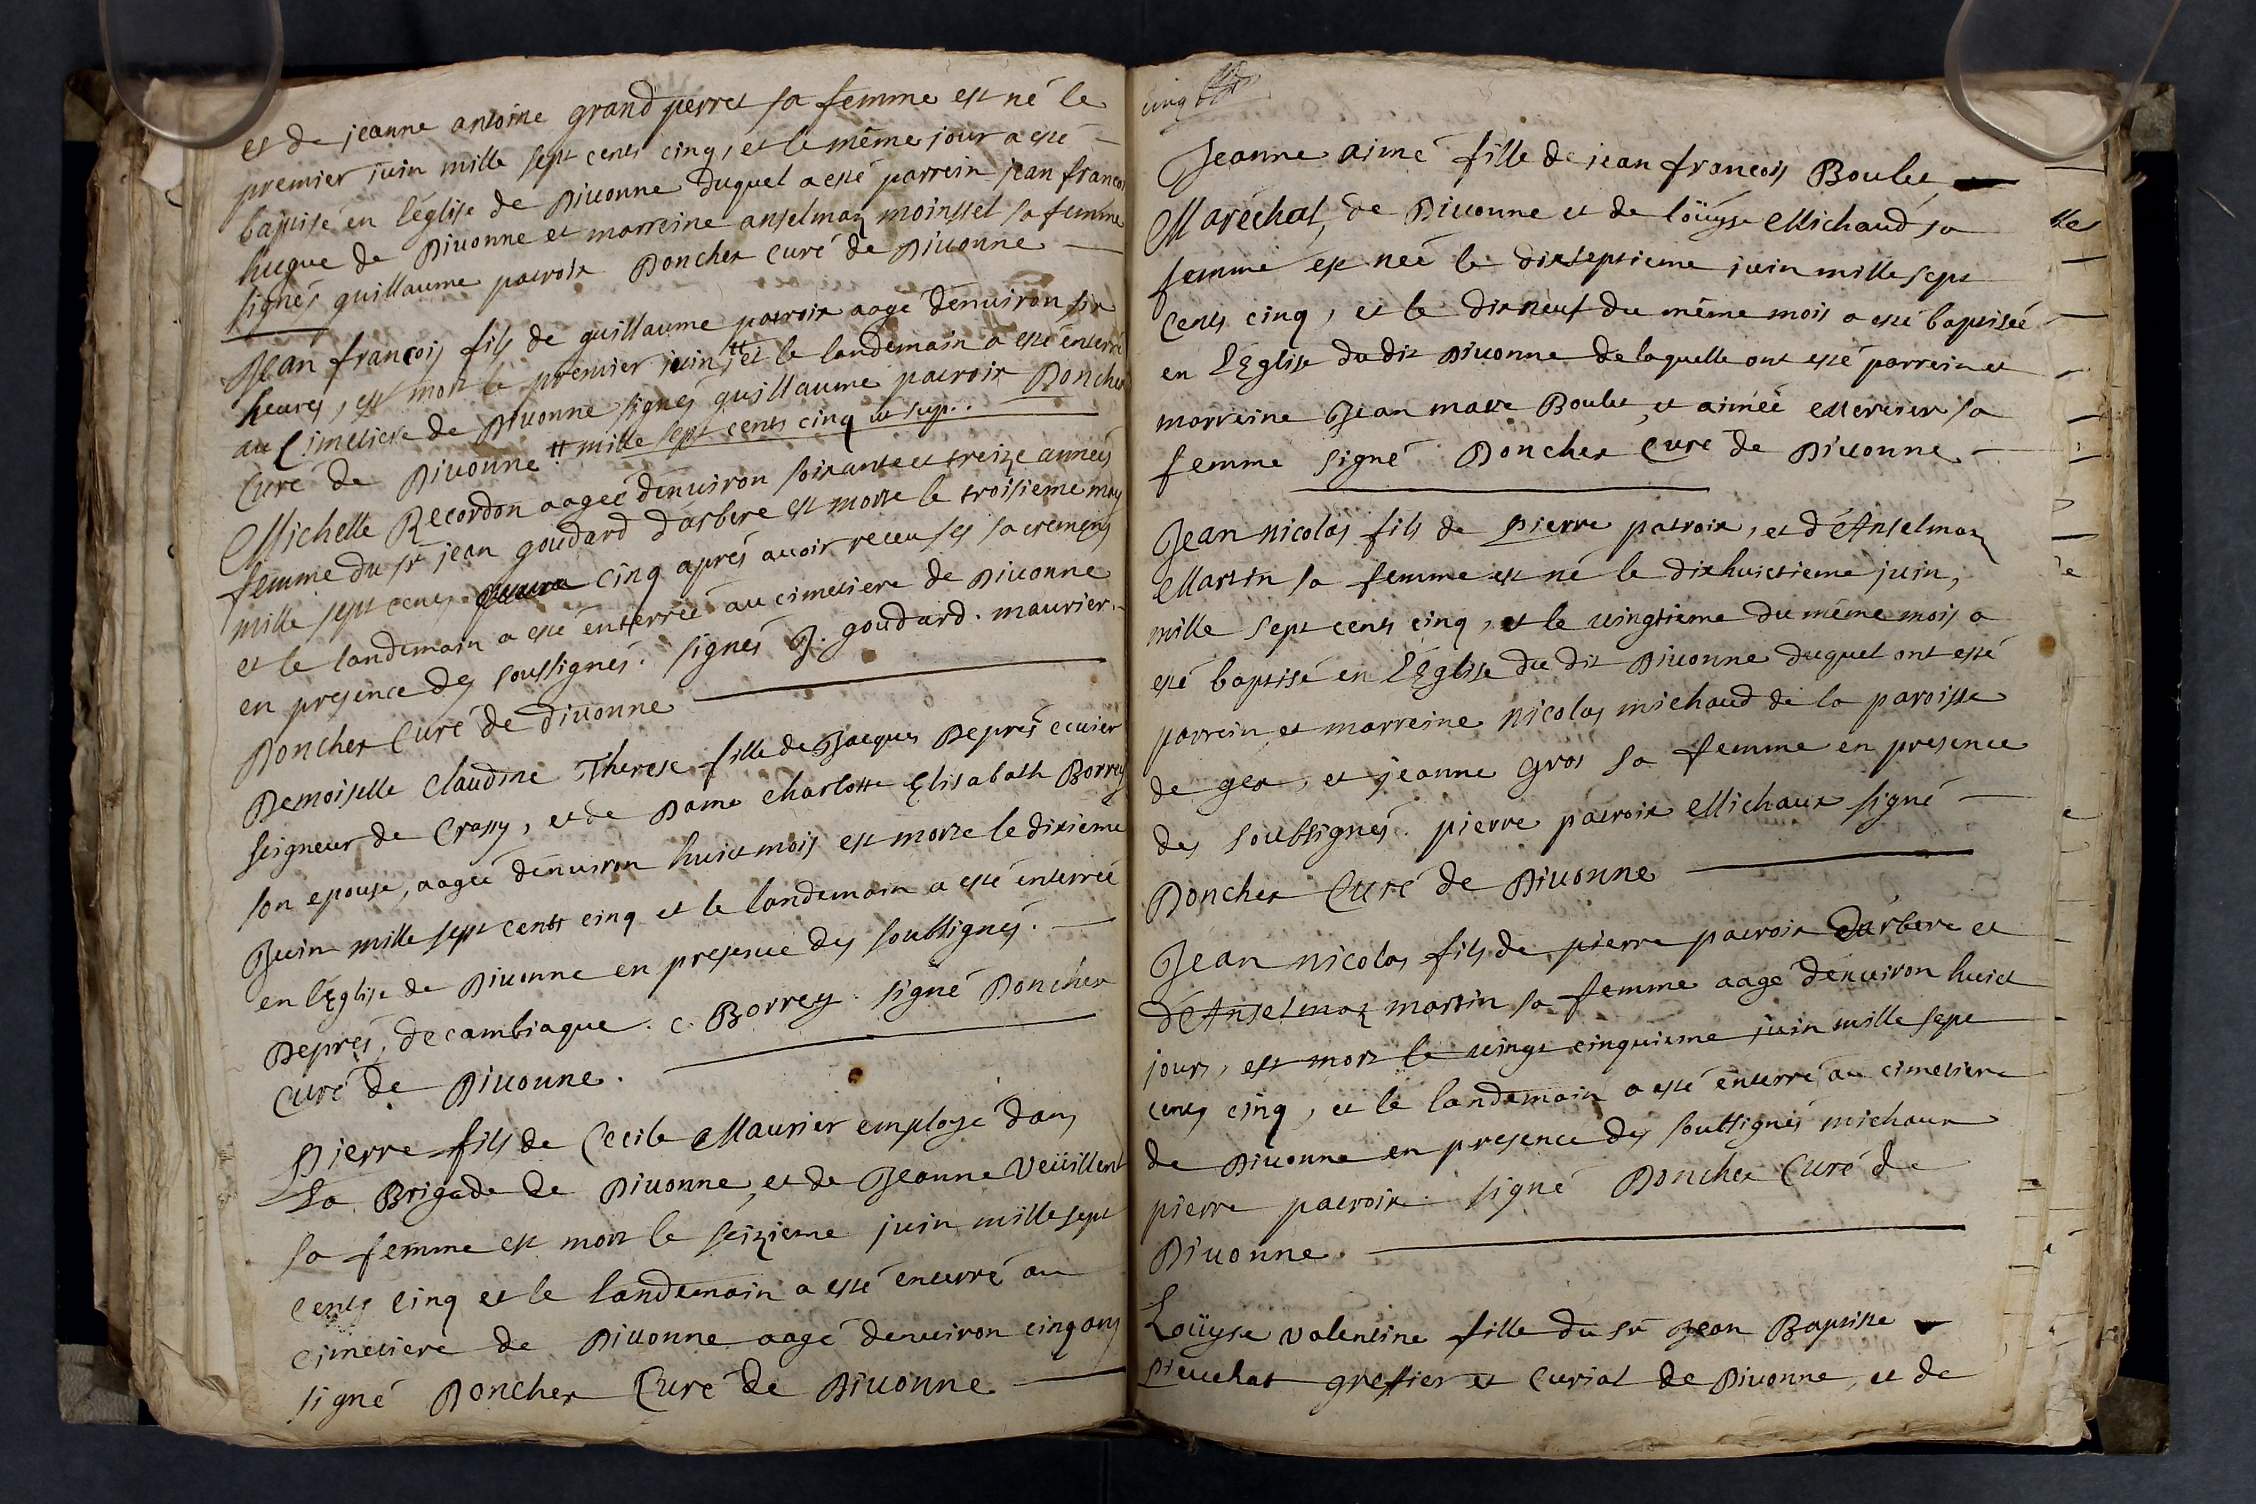 et de jeanne antoine grand perret sa femme est né le
premier juin mille sept cents cinq, et le même jour a esté
baptisé en l'église de Diuonne duquel a esté parrein jean francois
hugue de Diuonne et marreine anselmaz moinssel sa femme
signés guillaume pacroix Poncher curé de Diuonne
Jean françois fils de guillaume pacroix aagé d'enuiron six
heures, est mort le premier juin tt et le landemain a esté enterré
au Cimetiere de Diuonne signés guillaume pacroix Poncher
Curé de Diuonne tt mille sept cents cinq ut sup.
Michelle Recordon aageé d'enuiron soixante et treize anneés
femme du sr jean goudard d'arbere est morte le troisieme may
mille sept cents cinq aprés auoir receu ses sacremens
et le landemain a esté enterreé au cimetiere de Diuonne
en presence des soussignés. signés J. goudard. maurier.
Poncher Curé de diuonne
Demoiselle Claudine Therese fille de Jacques Deprés ecuier
seigneur de Crassy, et de Dame Charlotte Elisabath Borrey
son epouse, aageé d'enuiron huict mois est morte le dixieme
Juin mille sept cents cinq et le landemain a esté enterreé
en l'Eglise de Diuonne en presence des soubsignés.
Deprés, decambiague. c. Borrey. signé Poncher
Curé de Diuonne.
Pierre fils de Cecile Maurier employé dans
La Brigade de Diuonne, et de Jeanne Veüillent
sa femme est mort le seizieme juin mille sept
cents cinq et le landemain a esté enterré au
cimetiere de Diuonne aagé denuiron cinq ans
signé Poncher Curé de Diuonne
cinq
Jeanne aimé fille de jean françois Boulet
Maréchal, de Diuonne et de loüyse Michaud sa
femme est neé le dixseptieme juin mille sept
Cents cinq, et le dixneuf du même mois a esté baptiseé
en l'Eglise du dit Diuonne de laquelle ont esté parrein et
marreine Jean marc Boulet, et aimeé Mercier sa
femme signé Poncher Curé de Diuonne
Jean nicolas fils de Pierre pacroix, et d'Anselmaz
Martin sa femme est né le dixhuictieme juin,
mille sept cents cinq, et le uingtieme du même mois a
esté baptisé en l'Eglise du dit Diuonne duquel ont esté
parrein et marreine nicolas michaud de la paroisse
de gex, et jeanne gros sa femme en presence
des soubsignés. pierre pacroix Michaux signé
Poncher Curé de Diuonne
Jean nicolas fils de pierre pacroix d'arbere et
d'Anselmaz martin sa femme aagé d'enuiron huict
jours, est mort le uingt cinquieme juin mille sept
cents cinq, et le landemain a esté enterré au cimetiere
de Diuonne en presence des soubsignés michaux
pierre pacroix. signé Poncher Curé de
Diuonne.
Loüyse Valentine fille du sr Jean Baptiste
greffier et Curial de Diuonne, et de